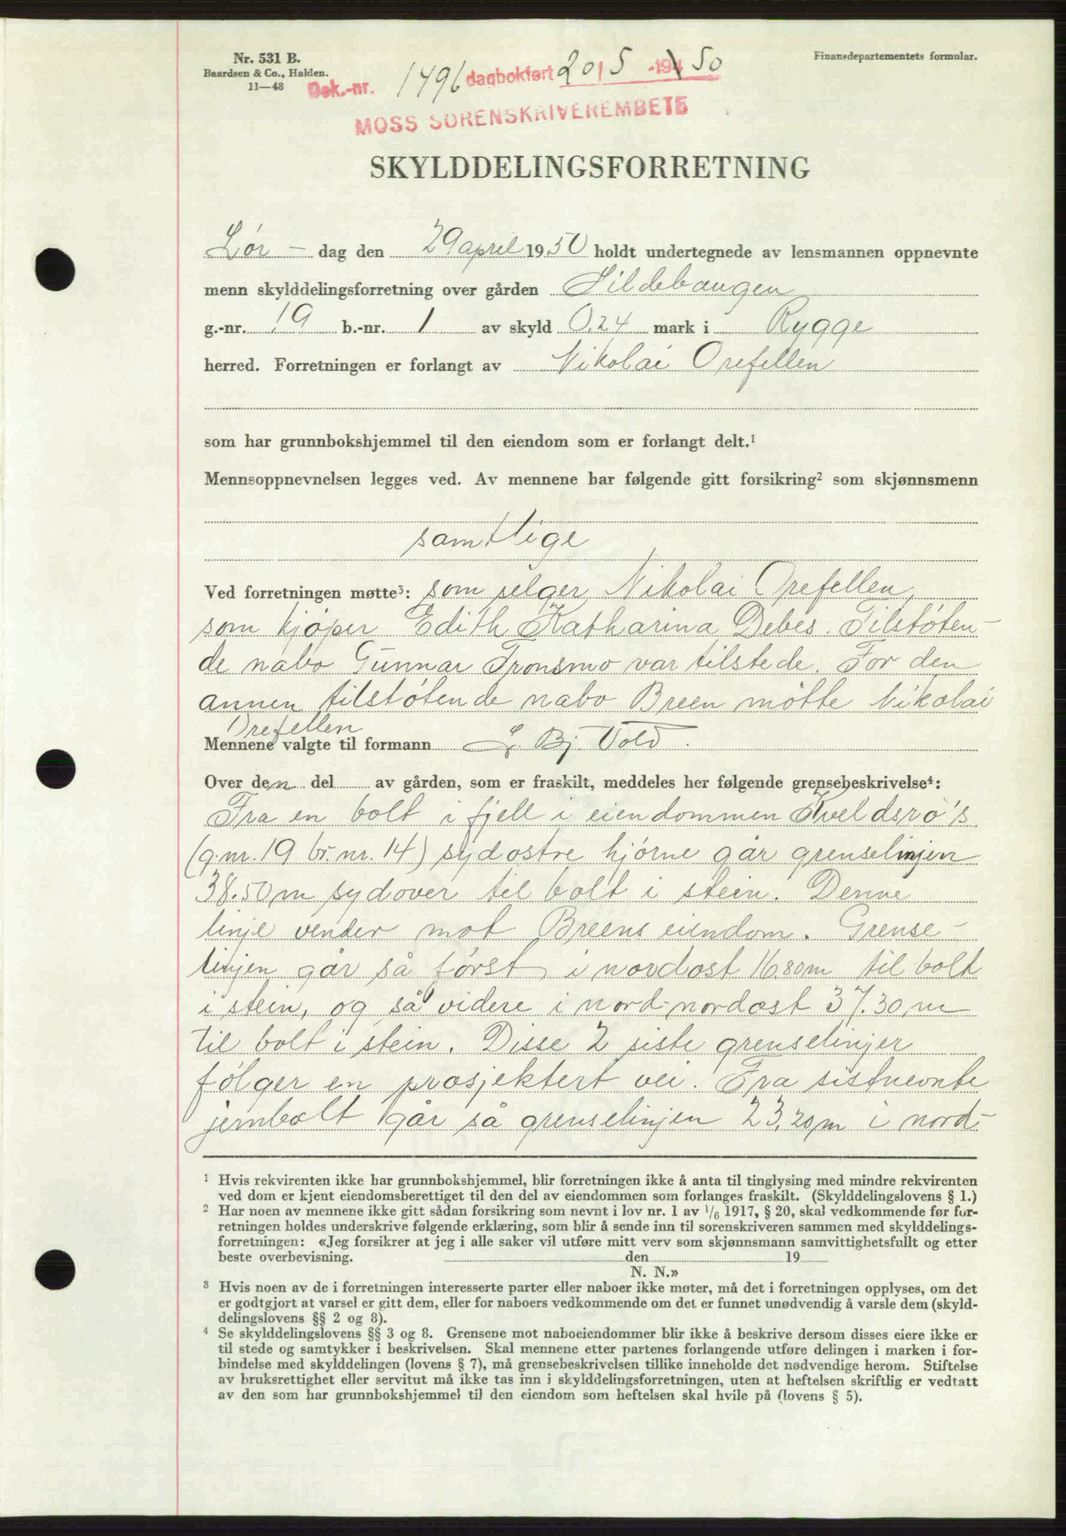 Nr. 531 B.
Baardsen & Co., Halden.
11—48
Finansdepartementets formular.
Dok.-nr. 1496 dagbokført 20/5 -19450
MOSS SORENSKRIVEREMBETE
SKYLDDELINGSFORRETNING
Lør - dag den 29 april 1950 holdt undertegnede av lensmannen oppnevnte
menn skylddelingsforretning over gården Sildebaugen
g.-nr. 19 b.-nr. 1 av skyld 0,24 mark i Rygge
herred. Forretningen er forlangt av Nikolai Orefellen
som har grunnbokshjemmel til den eiendom som er forlangt delt.¹
Mennsoppnevnelsen legges ved. Av mennene har følgende gitt forsikring² som skjønnsmenn
samtlige
Ved forretningen møtte³: som selger Nikolai Orefellen,
som kjøper Edith Katharina Debes. Tilstøten-
de nabo Gunnar Tronsmo var tilstede. For den
annen tilstøtende nabo Breen møtte Nikolai
Orefellen
Mennene valgte til formann Bj. Vold.
Over den del av gården, som er fraskilt, meddeles her følgende grensebeskrivelse⁴:
Fra en bolt i fjell i eiendommen Kveldsro's
(g.nr. 19 br. nr. 14) sydøstre hjørne går grenselinjen
38.50 m sydover til bolt i stein. Denne
linje vender mot Breens eiendom. Grense-
linjen går så først i nordost 16.80 m til bolt
i stein, og så videre i nord-nordost 37.30 m
til bolt i stein. Disse 2 siste grenselinjer
følger en prosjektert vei. Fra sistnevnte
jernbolt går så grenselinjen 23,20 m i nord-
¹ Hvis rekvirenten ikke har grunnbokshjemmel, blir forretningen ikke å anta til tinglysing med mindre rekvirenten
ved dom er kjent eiendomsberettiget til den del av eiendommen som forlanges fraskilt. (Skylddelingslovens § 1.)
² Har noen av mennene ikke gitt sådan forsikring som nevnt i lov nr. 1 av 1/6 1917, § 20, skal vedkommende før for-
retningen holdes underskrive følgende erklæring, som blir å sende inn til sorenskriveren sammen med skylddelings-
forretningen: «Jeg forsikrer at jeg i alle saker vil utføre mitt verv som skjønnsmann samvittighetsfullt og etter
beste overbevisning. den 19
N. N.»
³ Hvis noen av de i forretningen interesserte parter eller naboer ikke møter, må det i forretningen opplyses, om det
er godtgjort at varsel er gitt dem, eller for naboers vedkommende om det er funnet unødvendig å varsle dem (skyld-
delingslovens §§ 2 og 3).
⁴ Se skylddelingslovens §§ 3 og 8. Grensene mot naboeiendommer blir ikke å beskrive dersom disses eiere ikke er
til stede og samtykker i beskrivelsen. Skal mennene etter partenes forlangende utføre delingen i marken i for-
bindelse med skylddelingen (lovens § 7), må grensebeskrivelsen tillike inneholde det nødvendige herom. Stiftelse
av bruksrettighet eller servitut må ikke tas inn i skylddelingsforretningen, uten at heftelsen skriftlig er vedtatt
av den som har grunnbokshjemmel til den eiendom som heftelsen skal hvile på (lovens § 5).